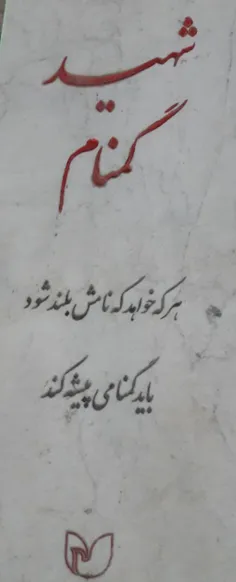 شهید
گمنام
هر که خواهد که نامش بلند شود
باید گمنامی پیشه کند